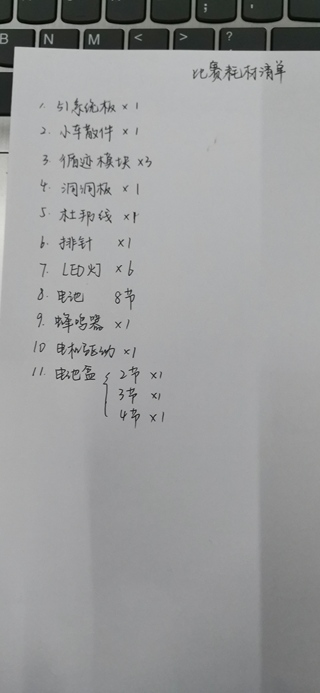 ;
:
B
N
M
<
,
>
.
?
/
比赛耗材清单
1. 51系统板 ×1
2. 小车散件 ×1
3 循迹模块 ×3
4. 洞洞板 ×1
5. 杜邦线 ×1
6. 排针 ×1
7. LED灯 ×6
8. 电池 8节
9. 蜂鸣器 ×1
10 电机驱动 ×1
11. 电池盒 { 2节 ×1
3节 ×1
4节 ×1